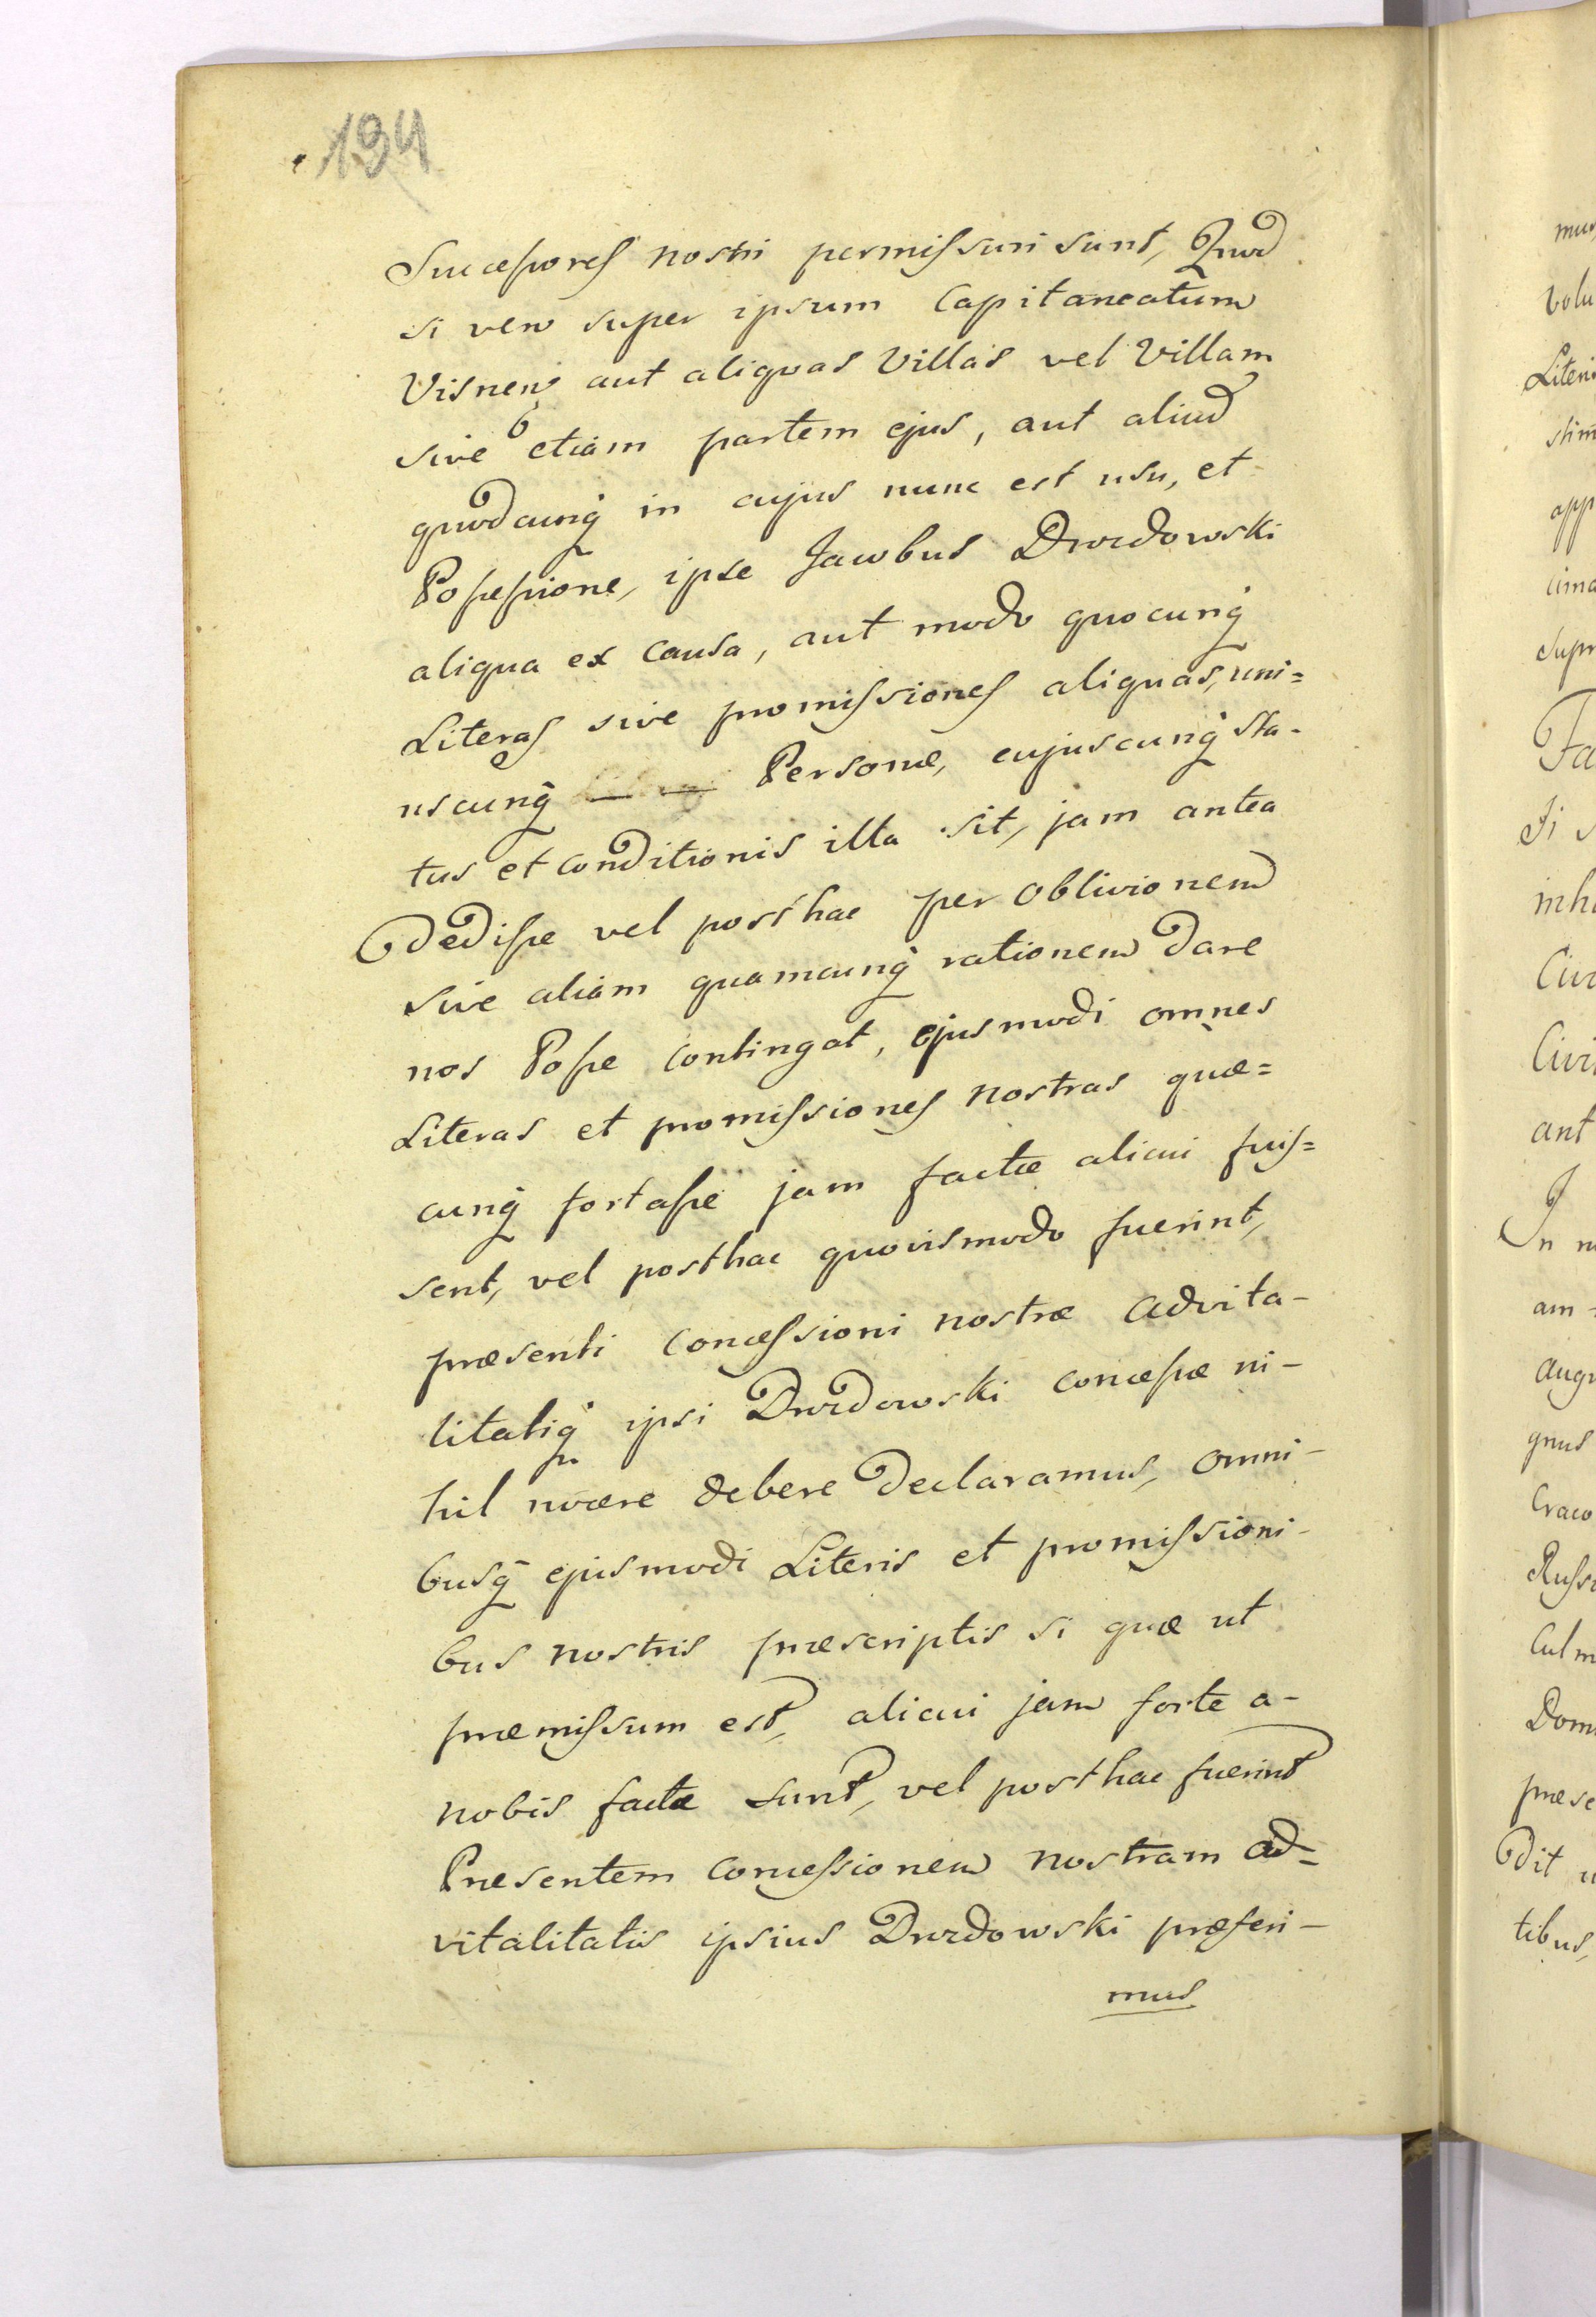 194
Successores nostri permissuri sunt, Quod
si vero super ipsum Capitaneatum
Visnen, aut aliquas Villas vel Villam
sive etiam partem ejus, aut aliud
quodcunq in cujus nunc est usu, et
Possessione, ipse Jacobus Drozdowski
aliqua ex Causa, aut modo quocunq
Literas sive promissiones aliquas, uni=
uscunq Personæ, cujuscunq sta-
tus et conditionis illa sit, jam antea
dedisse vel posthac per oblivionem
sive aliam quamcunq rationem dare
nos Posse contingat, ejusmodi omnes
Literas et promissiones nostras quæ=
cunq fortasse jam factæ alicui fuis=
sent, vel posthac quovismodo fuerint,
præsenti concessioni nostræ advita-
litatiq ipsi Drozdowski concessæ ni-
hil nocere debere declaramus, omni-
busq ejusmodi Literis et promissioni-
bus nostris præscriptis si quæ ut
præmissum est, alicui jam forte a-
nobis factæ sunt, vel posthac fuerint
Præsentem concessionem nostram ad-
vitalitatis ipsius Drozdowski præferi-
mus
mus
volu
Literi
stim
app
cima
Supr
Fa
Si s
inh
Civi
ant
In n
am=
Augu
gnus
Craco
Russi
Culm
Dom
præse
dit u
tibus,